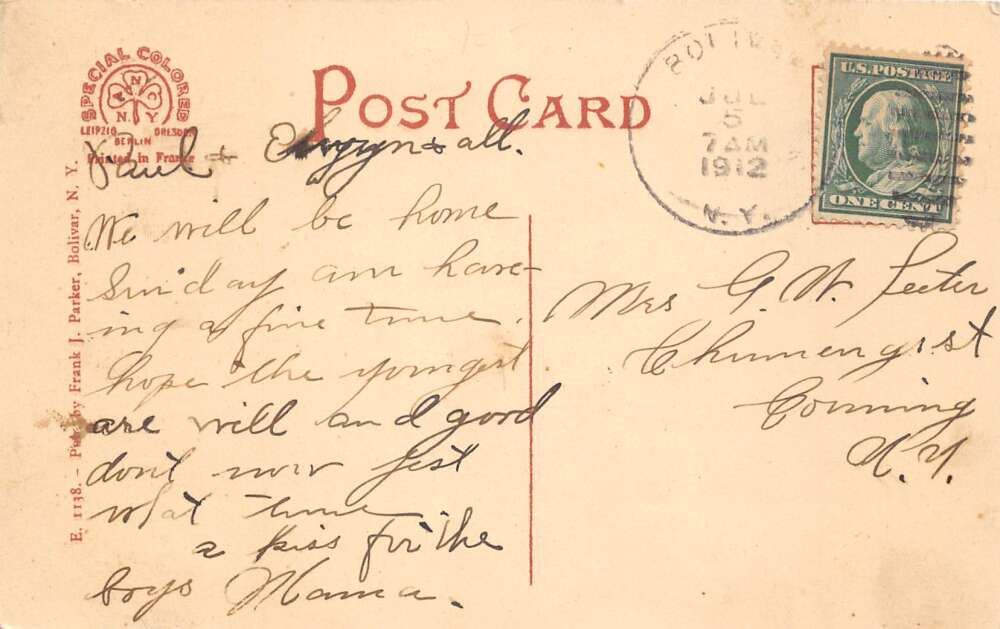 SPECIAL COLORED
A N C
N. Y.
LEIPZIG DRESDEN
BERLIN
Printed in France
POST CARD
BOLIVAR
JUL
5
7 AM
1912
N.Y.
U.S. POSTAGE
ONE CENT
Paul & & all.
We will be home
Sunday am have-
ing a fine time.
hope the youngest
are will and good
dont now jest
what time
a kiss for the
boys Mama.
Mrs G. W. Teeter
st
Corning
N.Y.
E. 1138. - Pub. by Frank J. Parker, Bolivar, N. Y.